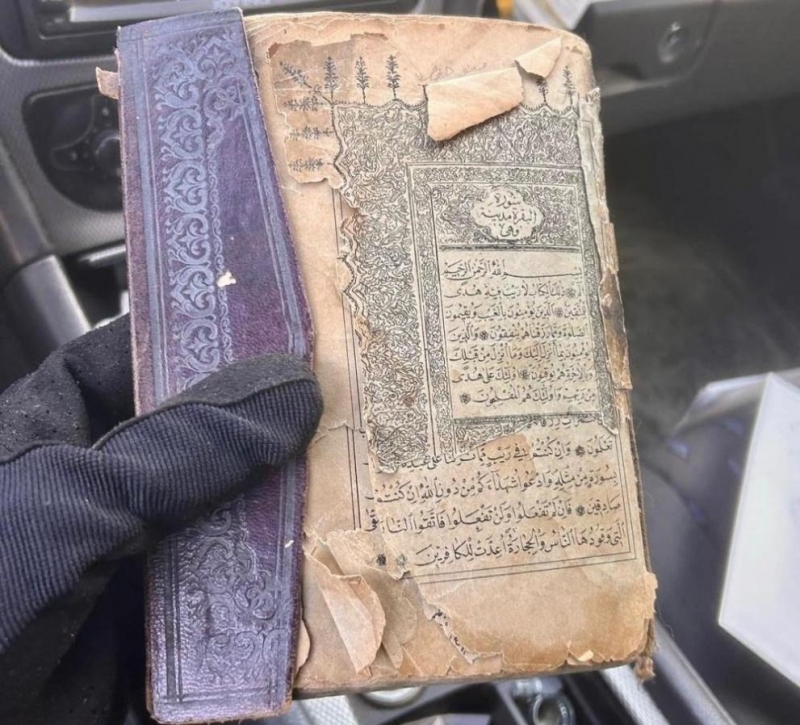 سورة
البقرة مدينة
وهي
بسم الله الرحمن الرحيم
ذلك الكتاب لا ريب فيه هدى
للمتقين الذين يؤمنون بالغيب ويقيمون
الصلوة ومما رزقناهم ينفقون والذين
يؤمنون بما أنزل إليك وما أنزل من قبلك
وبالآخرة هم يوقنون أولئك على هدى
من ربهم وأولئك هم المفلحون
تعلمون وإن كنتم في ريب مما نزلنا على عبدنا
بسورة من مثله وادعوا شهداءكم من دون الله إن كنتم
صادقين فإن لم تفعلوا ولن تفعلوا فاتقوا النار
التي وقودها الناس والحجارة أعدت للكافرين